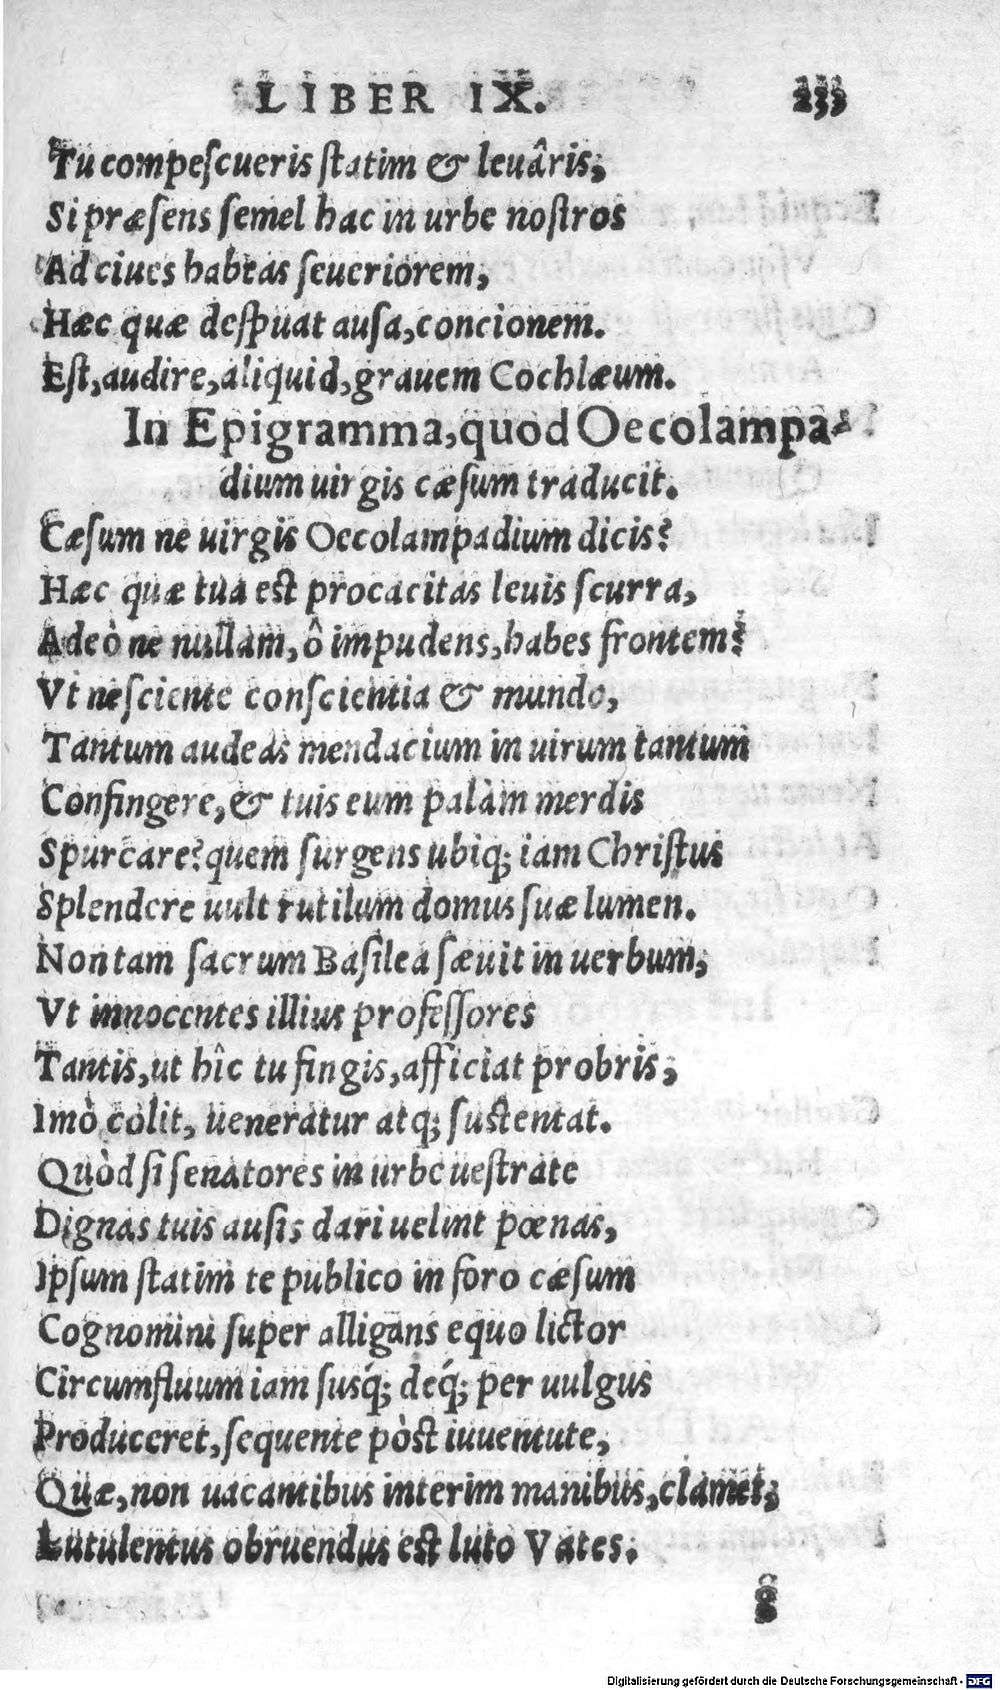 LIBER IX. 233
Tu compeſcueris ſtatim & leuâris;
Si præſens ſemel hac in urbe noſtros
Ad ciues habeas ſeueriorem,
Hæc quæ deſpuat auſa, concionem.
Eſt, audire, aliquid, grauem Cochlæum.
In Epigramma, quod Oecolampa-
dium uirgis cæſum traducit.
Cæſum ne uirgis Oecolampadium dicis?
Hæc quæ tua eſt procacitas leuis ſcurra,
Adeò ne nullam, ô impudens, habes frontem?
Vt neſciente conſcientia & mundo,
Tantum audeas mendacium in uirum tantum
Confingere, & tuis eum palàm merdis
Spurcare? quem ſurgens ubiq; iam Chriſtus
Splendere uult rutilum domus ſuæ lumen.
Non tam ſacrum Baſilea ſæuit in uerbum,
Vt innocentes illius profeſſores
Tantis, ut hîc tu fingis, afficiat probris;
Imò colit, ueneratur atq; ſuſtentat.
Quòd ſi ſenatores in urbe ueſtrate
Dignas tuis auſis dari uelint pœnas,
Ipſum ſtatim te publico in foro cæſum
Cognomini ſuper alligans equo lictor
Circumfluum iam ſusq́; deq́; per uulgus
Produceret, ſequente pòſt iuuentute,
Quæ, non uacantibus interim manibus, clamet;
Lutulentus obruendus eſt luto Vates.
g
Digitalisierung gefördert durch die Deutsche Forschungsgemeinschaft - DFG